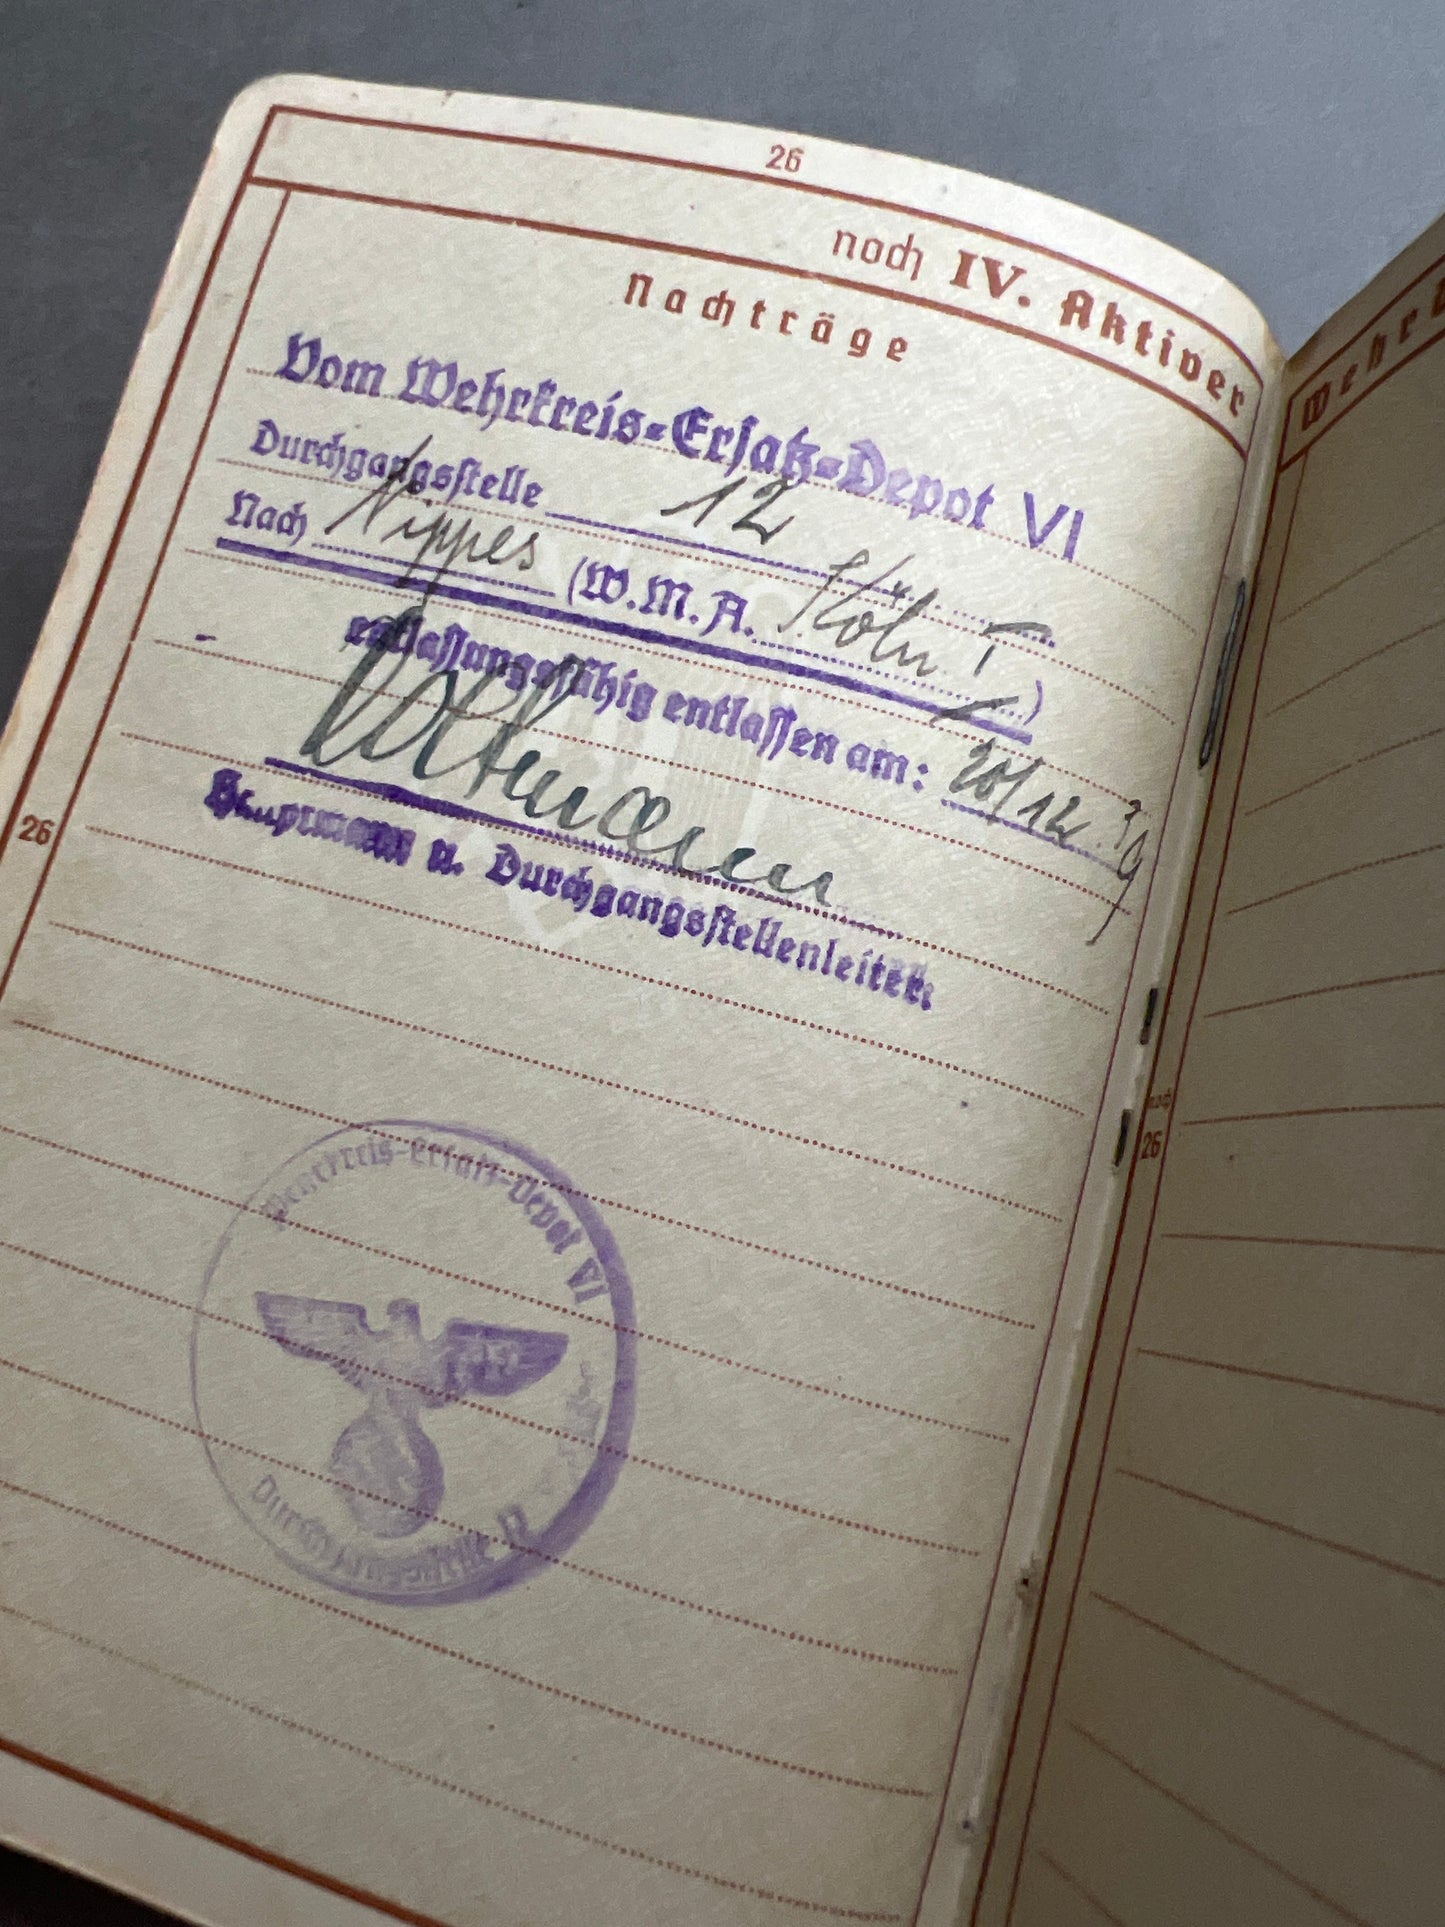 26
noch IV. Aktiver
Nachträge
Vom Wehrkreis-Ersatz-Depot VI
Durchgangsstelle 12
Nach Nippes (W.M.A. Köln I)
entlassungsfähig entlassen am: 20/12.39
Hauptmann u. Durchgangsstellenleiter.
26
Wehrkreis-Ersatz-Depot VI
Durchgangsstelle 12
Wehrd
noch
26